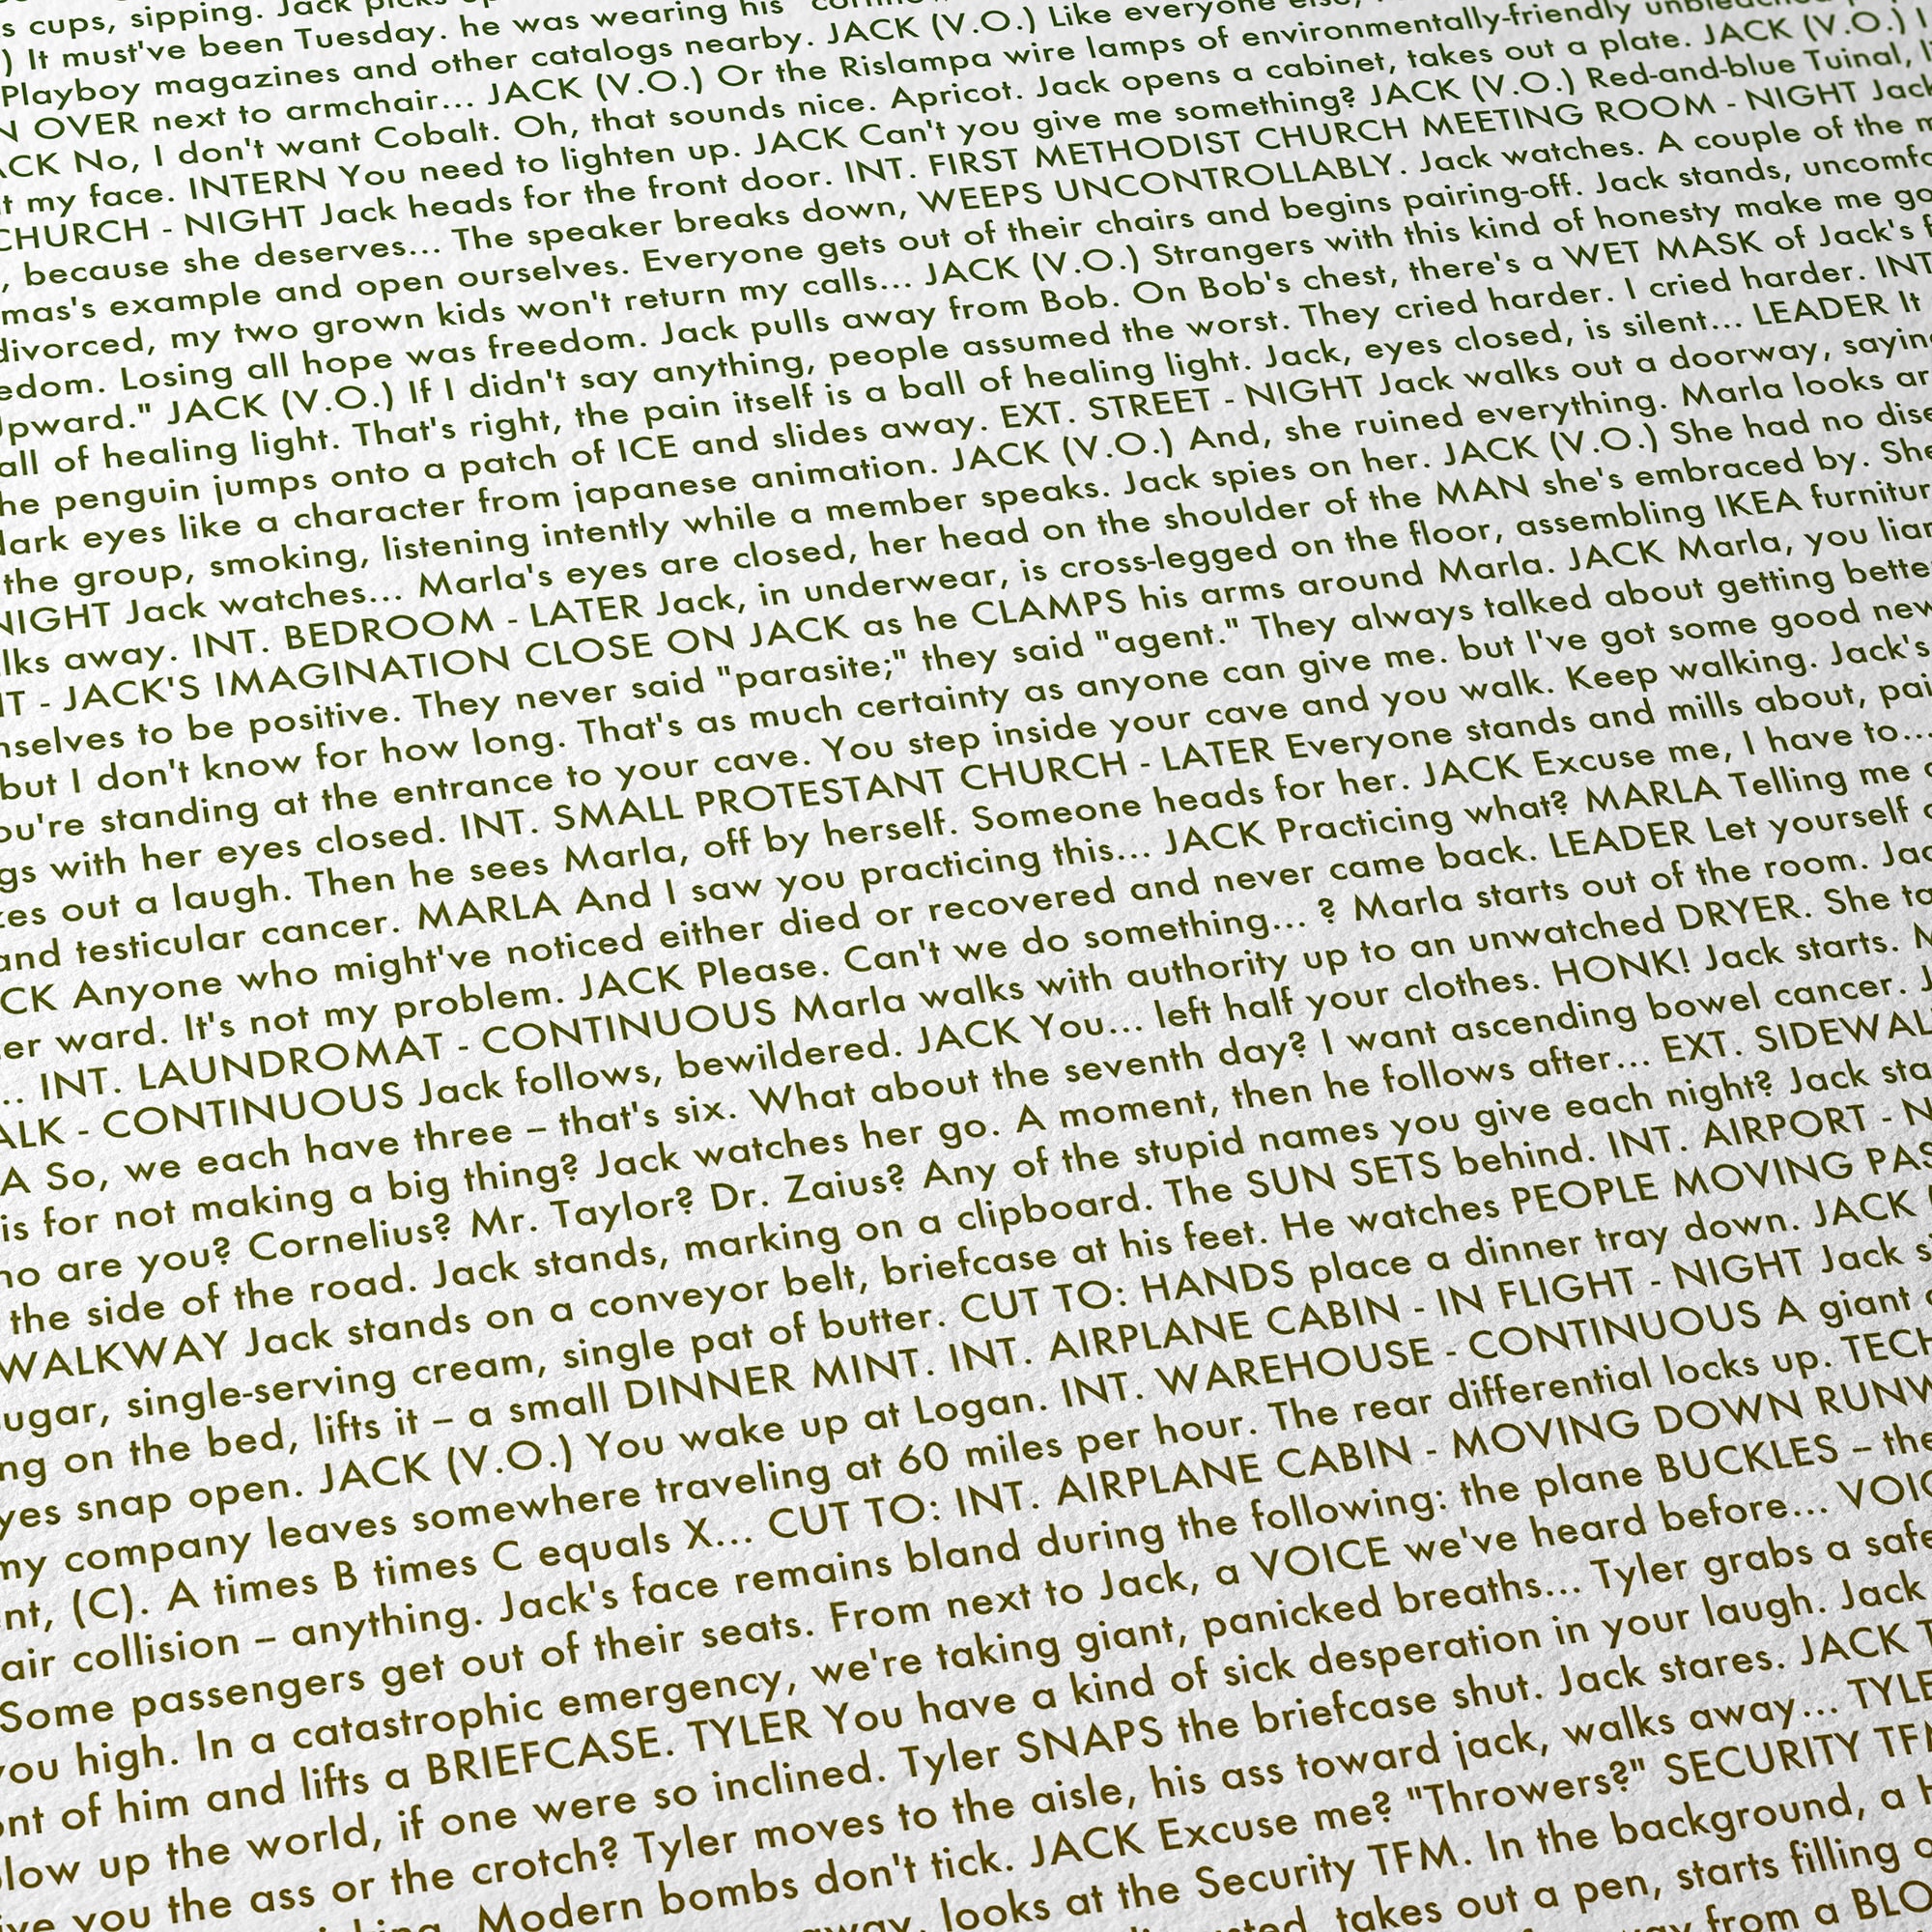 s cups, sipping. Jack
) It must've been Tuesday. he was wearing his
Playboy magazines and other catalogs nearby. JACK (V.O.) Like everyone
N OVER next to armchair... JACK (V.O.) Or the Rislampa wire lamps of environmentally-friendly
ACK No, I don't want Cobalt. Oh, that sounds nice. Apricot. Jack opens a cabinet, takes out a plate. JACK (V.O.)
t my face. INTERN You need to lighten up. JACK Can't you give me something? JACK (V.O.) Red-and-blue Tuinal,
CHURCH - NIGHT Jack heads for the front door. INT. FIRST METHODIST CHURCH MEETING ROOM - NIGHT Jack
, because she deserves... The speaker breaks down, WEEPS UNCONTROLLABLY. Jack watches. A couple of the m
mas's example and open ourselves. Everyone gets out of their chairs and begins pairing-off. Jack stands, uncomfo
divorced, my two grown kids won't return my calls... JACK (V.O.) Strangers with this kind of honesty make me go
edom. Losing all hope was freedom. Jack pulls away from Bob. On Bob's chest, there's a WET MASK of Jack's
pward." JACK (V.O.) If I didn't say anything, people assumed the worst. They cried harder. I cried harder. INT
all of healing light. That's right, the pain itself is a ball of healing light. Jack, eyes closed, is silent... LEADER It
he penguin jumps onto a patch of ICE and slides away. EXT. STREET - NIGHT Jack walks out a doorway, sayin
dark eyes like a character from japanese animation. JACK (V.O.) And, she ruined everything. Marla looks ar
the group, smoking, listening intently while a member speaks. Jack spies on her. JACK (V.O.) She had no dis
NIGHT Jack watches... Marla's eyes are closed, her head on the shoulder of the MAN she's embraced by. She
lks away. INT. BEDROOM - LATER Jack, in underwear, is cross-legged on the floor, assembling IKEA furnitur
HT - JACK'S IMAGINATION CLOSE ON JACK as he CLAMPS his arms around Marla. JACK Marla, you liar
mselves to be positive. They never said "parasite;" they said "agent." They always talked about getting bette
but I don't know for how long. That's as much certainty as anyone can give me. but I've got some good new
ou're standing at the entrance to your cave. You step inside your cave and you walk. Keep walking. Jack's
gs with her eyes closed. INT. SMALL PROTESTANT CHURCH - LATER Everyone stands and mills about, pai
zes out a laugh. Then he sees Marla, off by herself. Someone heads for her. JACK Excuse me, I have to...
and testicular cancer. MARLA And I saw you practicing this... JACK Practicing what? MARLA Telling me
CK Anyone who might've noticed either died or recovered and never came back. LEADER Let yourself
er ward. It's not my problem. JACK Please. Can't we do something... ? Marla starts out of the room. Jac
... INT. LAUNDROMAT - CONTINUOUS Marla walks with authority up to an unwatched DRYER. She ta
ALK - CONTINUOUS Jack follows, bewildered. JACK You... left half your clothes. HONK! Jack starts. M
A So, we each have three – that's six. What about the seventh day? I want ascending bowel cancer. J
is for not making a big thing? Jack watches her go. A moment, then he follows after... EXT. SIDEWAL
ho are you? Cornelius? Mr. Taylor? Dr. Zaius? Any of the stupid names you give each night? Jack sta
the side of the road. Jack stands, marking on a clipboard. The SUN SETS behind. INT. AIRPORT - N
WALKWAY Jack stands on a conveyor belt, briefcase at his feet. He watches PEOPLE MOVING PAS
ugar, single-serving cream, single pat of butter. CUT TO: HANDS place a dinner tray down. JACK
ng on the bed, lifts it – a small DINNER MINT. INT. AIRPLANE CABIN - IN FLIGHT - NIGHT Jack s
yes snap open. JACK (V.O.) You wake up at Logan. INT. WAREHOUSE - CONTINUOUS A giant
my company leaves somewhere traveling at 60 miles per hour. The rear differential locks up. TECH
nt, (C). A times B times C equals X... CUT TO: INT. AIRPLANE CABIN - MOVING DOWN RUNW
air collision – anything. Jack's face remains bland during the following: the plane BUCKLES – the
Some passengers get out of their seats. From next to Jack, a VOICE we've heard before... VOIC
you high. In a catastrophic emergency, we're taking giant, panicked breaths... Tyler grabs a safe
ont of him and lifts a BRIEFCASE. TYLER You have a kind of sick desperation in your laugh. Jack
low up the world, if one were so inclined. Tyler SNAPS the briefcase shut. Jack stares. JACK T
ive you the ass or the crotch? Tyler moves to the aisle, his ass toward jack, walks away... TYLE
Modern bombs don't tick. JACK Excuse me? "Throwers?" SECURITY TF
away, looks at the Security TFM. In the background, a
takes out a pen, starts filling
away from a BLO